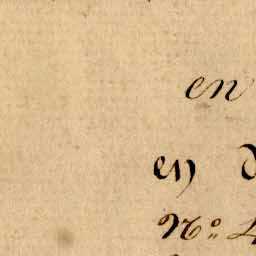 en
en
No: